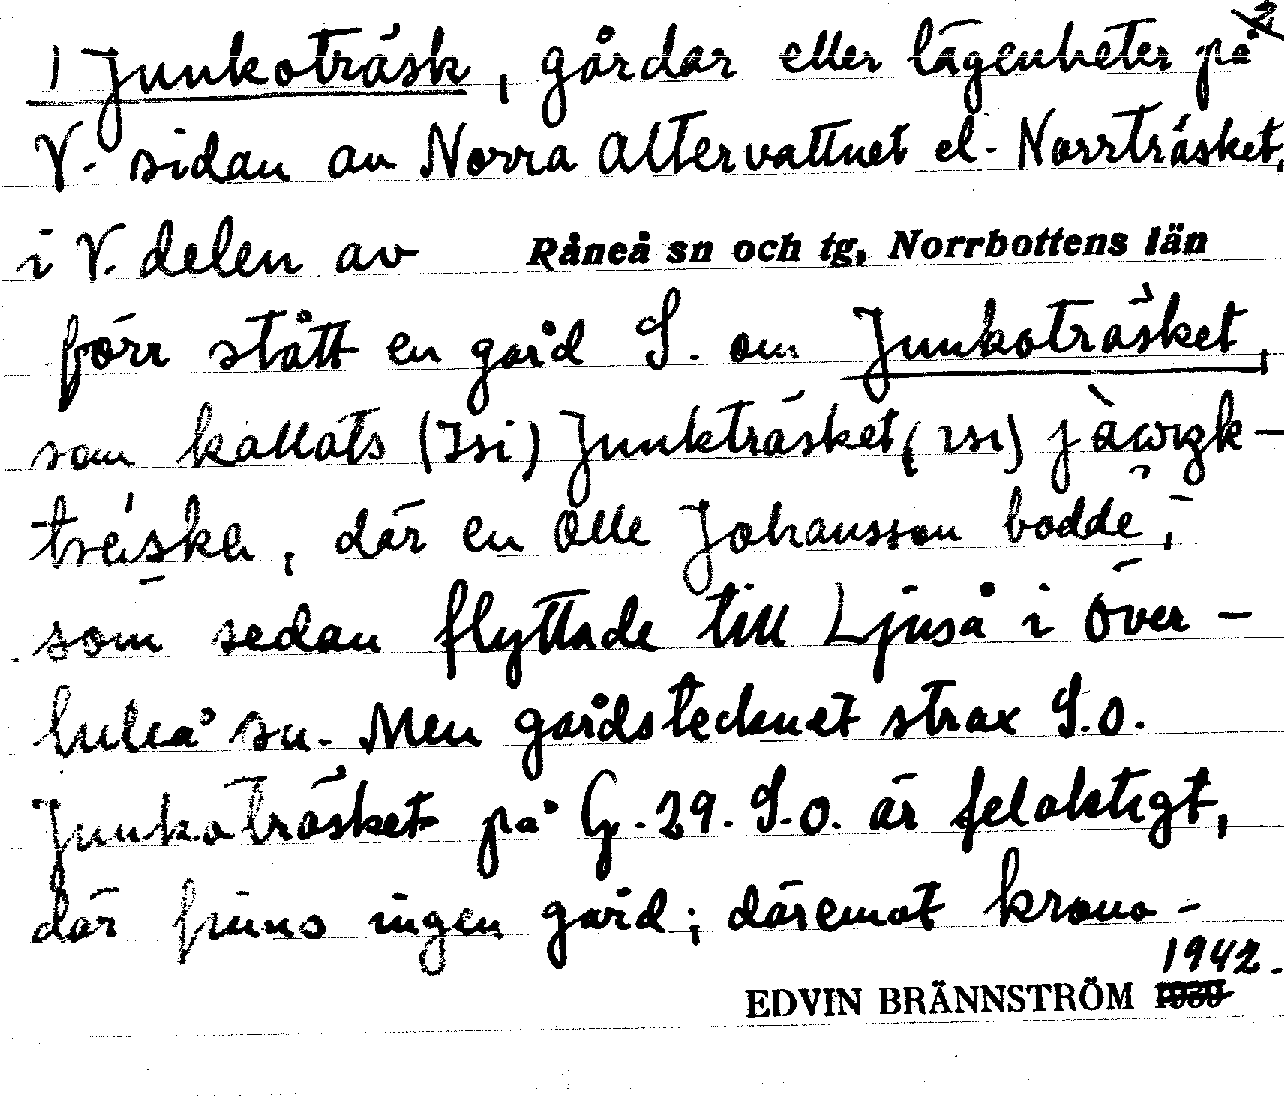 1) Junkoträsk, gårdar eller lägenheter på 1/2
V. sidan av Norra Altervattnet el. Norrträsket,
i V. delen av Råneå sn och tg, Norrbottens län
förr stått en gård S. om Junkoträsket,
som kallats (Isi) Junkträsket, (isi)
träska, där en Olle Johansson bodde,
som sedan flyttade till Ljuså i Över-
luleå sn. Men gårdstecknet strax S.O.
Junkoträsket på G. 29. S.O. är felaktigt,
där finns ingen gård; däremot krono-
1942.
EDVIN BRÄNNSTRÖM 1930